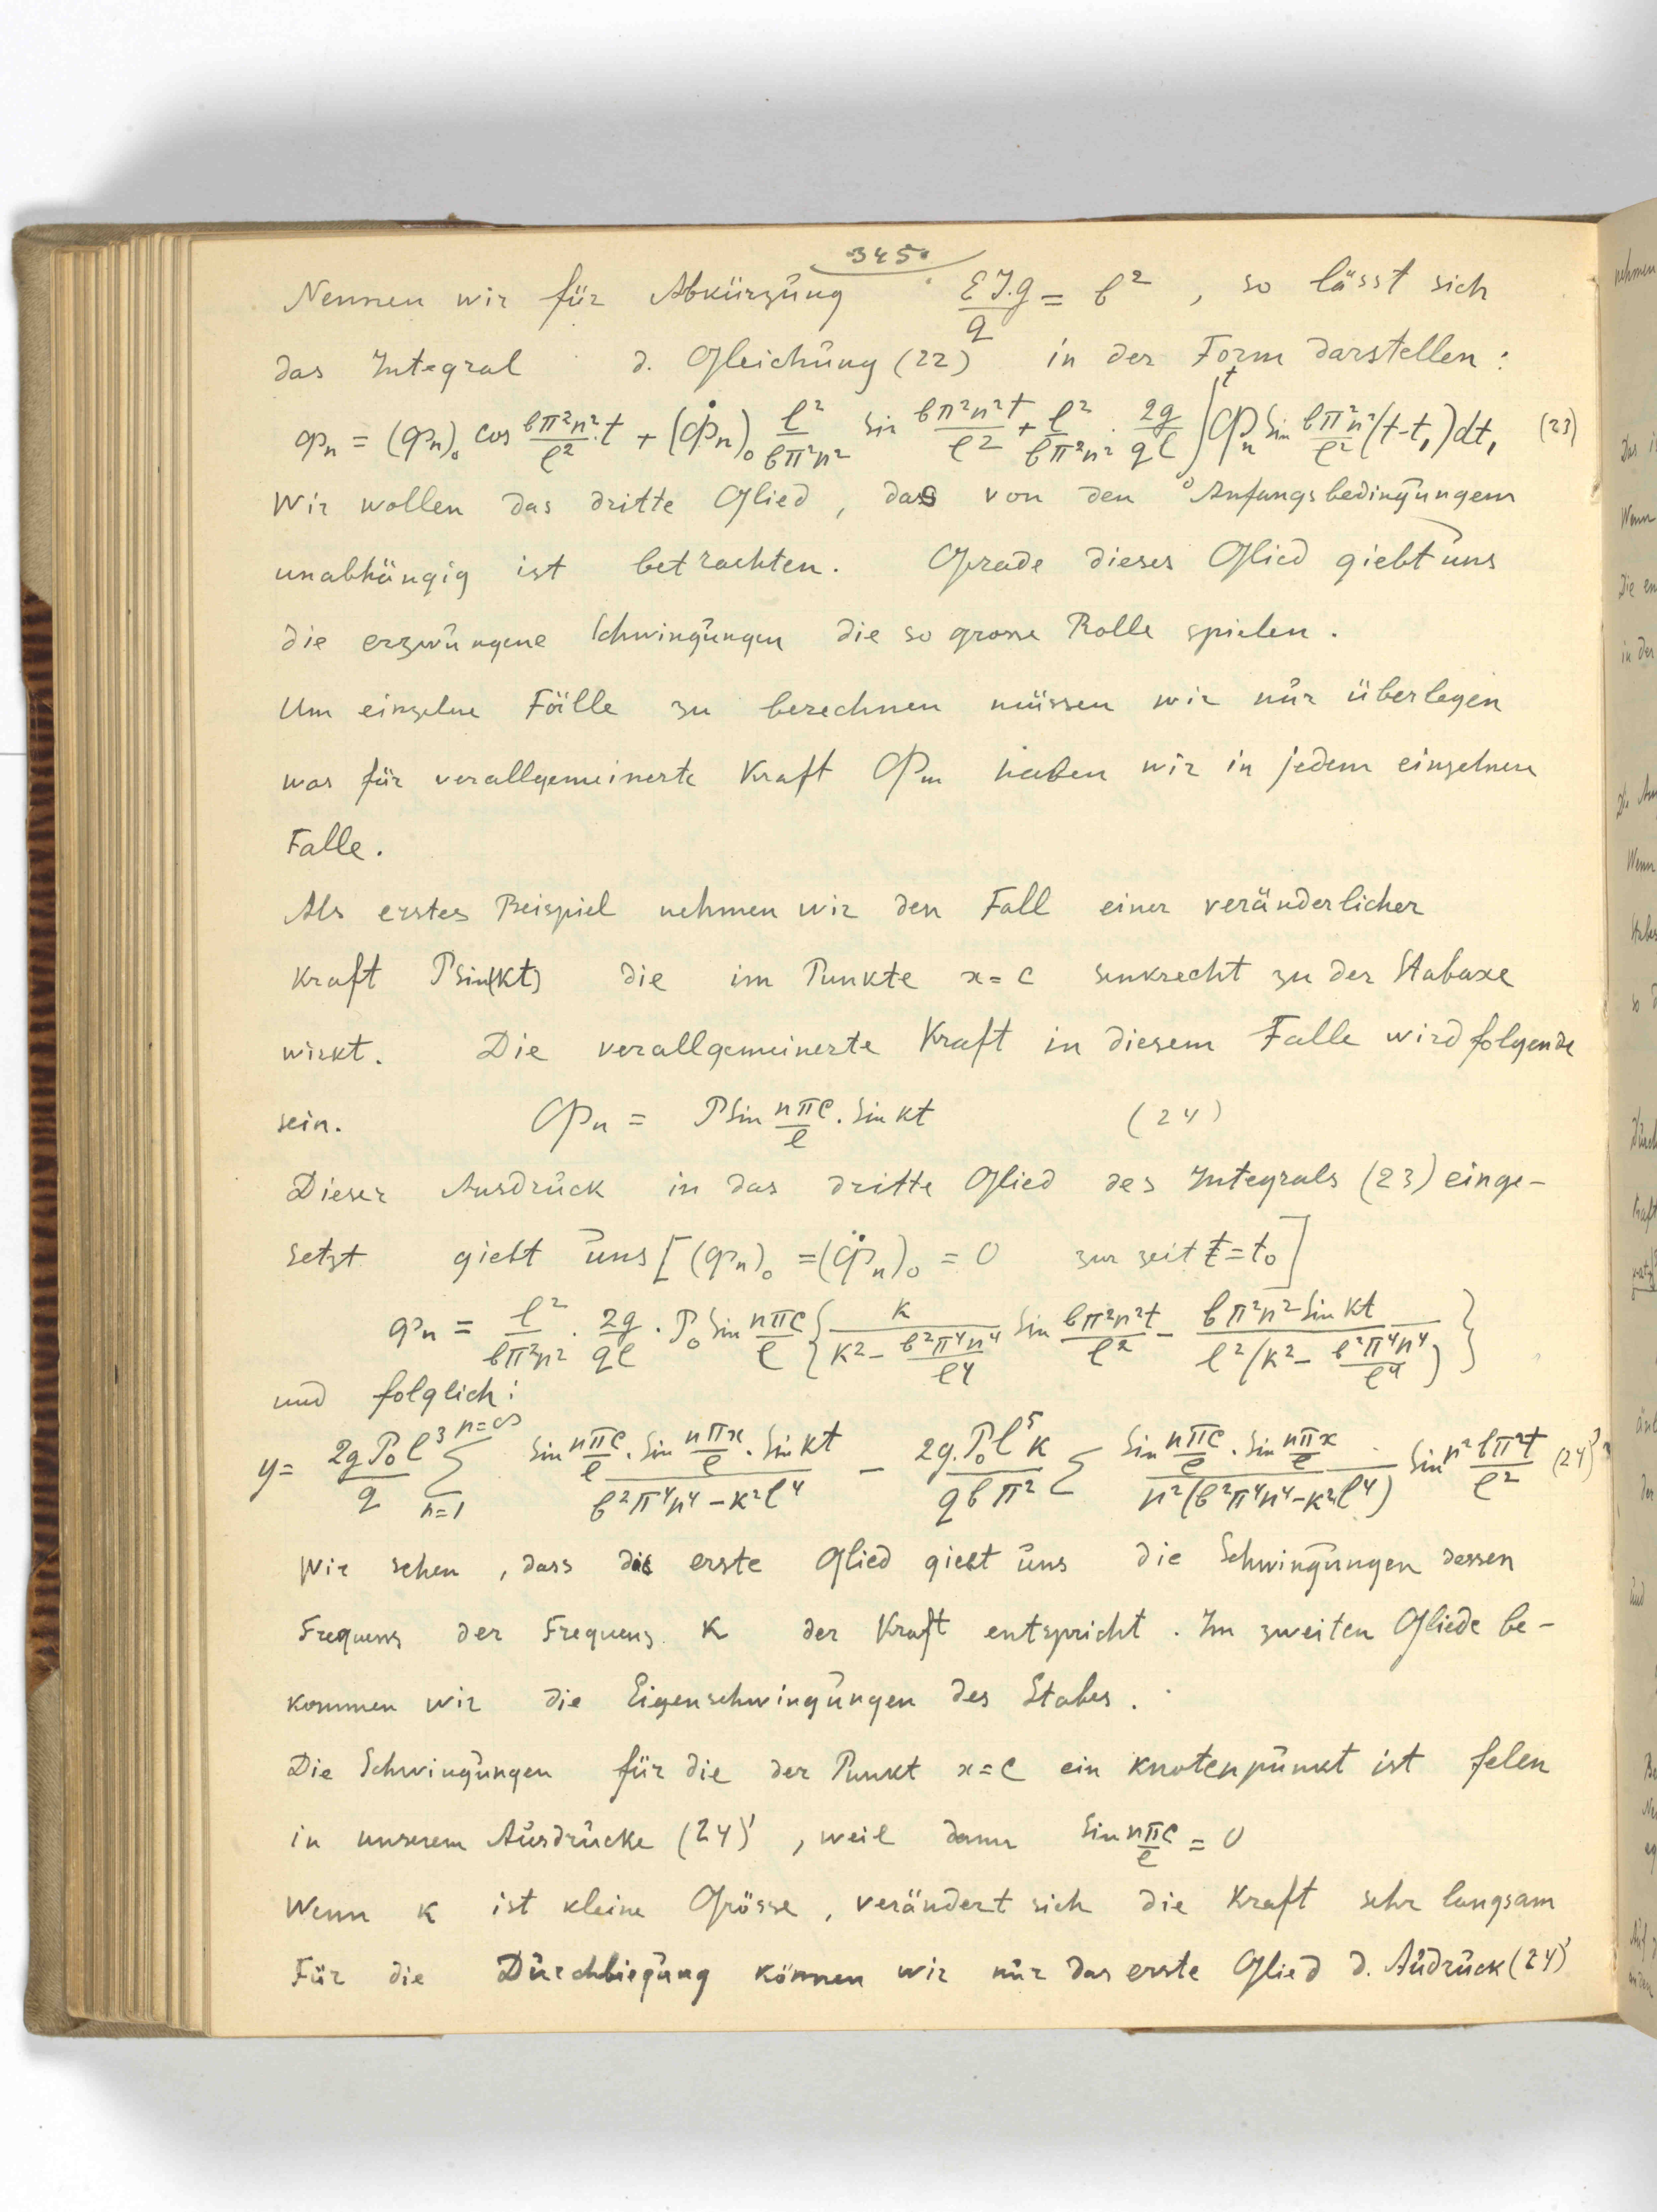 345.
Nennen wir für Abkürzung EJ.g/q = b², so lässt sich
das Integral d. Gleichung (22) in der Form darstellen:
φₙ = (φₙ)₀ cos bπ²n²/l² · t + (φ̇ₙ)₀ l²/bπ²n² sin bπ²n²t/l² + l²/bπ²n² · 2g/ql ∫₀ᵗ Φₙ Sin bπ²n²/l² (t-t₁)dt₁ (23)
Wir wollen das dritte Glied, das von den Anfangsbedingungen
unabhängig ist betrachten. Grade dieses Glied giebt uns
die erzwungene Schwingungen die so grosse Rolle spielen.
Um einzelne Fälle zu berechnen müssen wir nur überlegen
was für verallgemeinerte Kraft Φₘ haben wir in jedem einzelnen
Falle.
Als erstes Beispiel nehmen wir den Fall einer veränderlicher
Kraft P sin(kt) die im Punkte x=c senkrecht zu der Stabaxe
wirkt. Die verallgemeinerte Kraft in diesem Falle wird folgende
sein. Φₙ = P Sin nπc/l · Sin kt (24)
Dieser Ausdruck in das dritte Glied des Integrals (23) einge-
setzt giebt uns [(φₙ)₀ = (φ̇ₙ)₀ = 0 zur zeit t=t₀]
φₙ = l²/bπ²n² · 2g/ql · P₀ Sin nπc/l { k/(k² - b²π⁴n⁴/l⁴) Sin bπ²n²t/l² - bπ²n² Sin kt/(l²(k² - b²π⁴n⁴/l⁴)) }
und folglich:
y = 2gP₀l³/q Σ n=1 n=∞ Sin nπc/l · Sin nπx/l · Sin kt/(b²π⁴n⁴ - k²l⁴) - 2g.P₀l⁵k/qbπ² Σ Sin nπc/l · Sin nπx/l/(n²(b²π⁴n⁴ - k²l⁴)) Sin n² bπ²t/l² (24)'
Wir sehen, dass das erste Glied giebt uns die Schwingungen dessen
Frequenz der Frequenz k der Kraft entspricht. Im zweiten Gliede be-
kommen wir die Eigenschwingungen des Stabes.
Die Schwingungen für die der Punkt x=c ein Knotenpunkt ist felen
in unserem Ausdrucke (24)', weil dann Sin nπc/l = 0
Wenn k ist kleine Grösse, verändert sich die Kraft sehr langsam
Für die Durchbiegung können wir nur das erste Glied d. Audruck (24)'